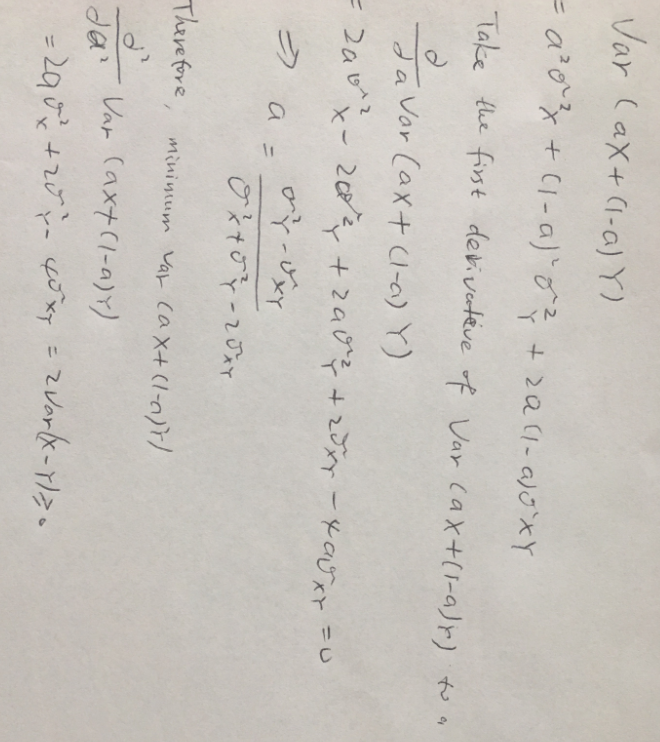 Var (aX + (1-a) Y)
= a²σ²x + (1-a)²σ²Y + 2a(1-a)σXY
Take the first derivative of Var (aX+(1-a)Y) to a
∂/∂a Var (aX + (1-a) Y)
= 2aσ²x - 2σ²Y + 2aσ²Y + 2σXY - 4aσXY = 0
⇒ a = (σ²Y - σXY) / (σ²X + σ²Y - 2σXY)
Therefore, minimum Var (aX + (1-a)Y)
∂²/∂a² Var (aX+(1-a)Y)
= 2aσ²x + 2σ²Y - 4σXY = 2Var(X-Y) ≥ 0